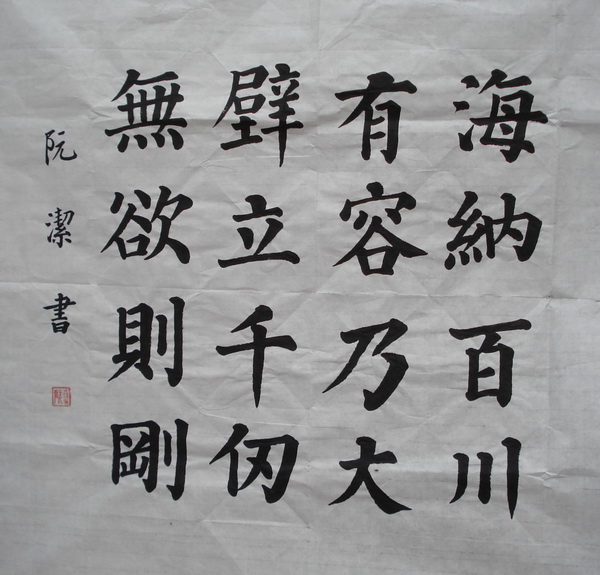 海納百川
有容乃大
壁立千仞
無欲則剛
阮潔書